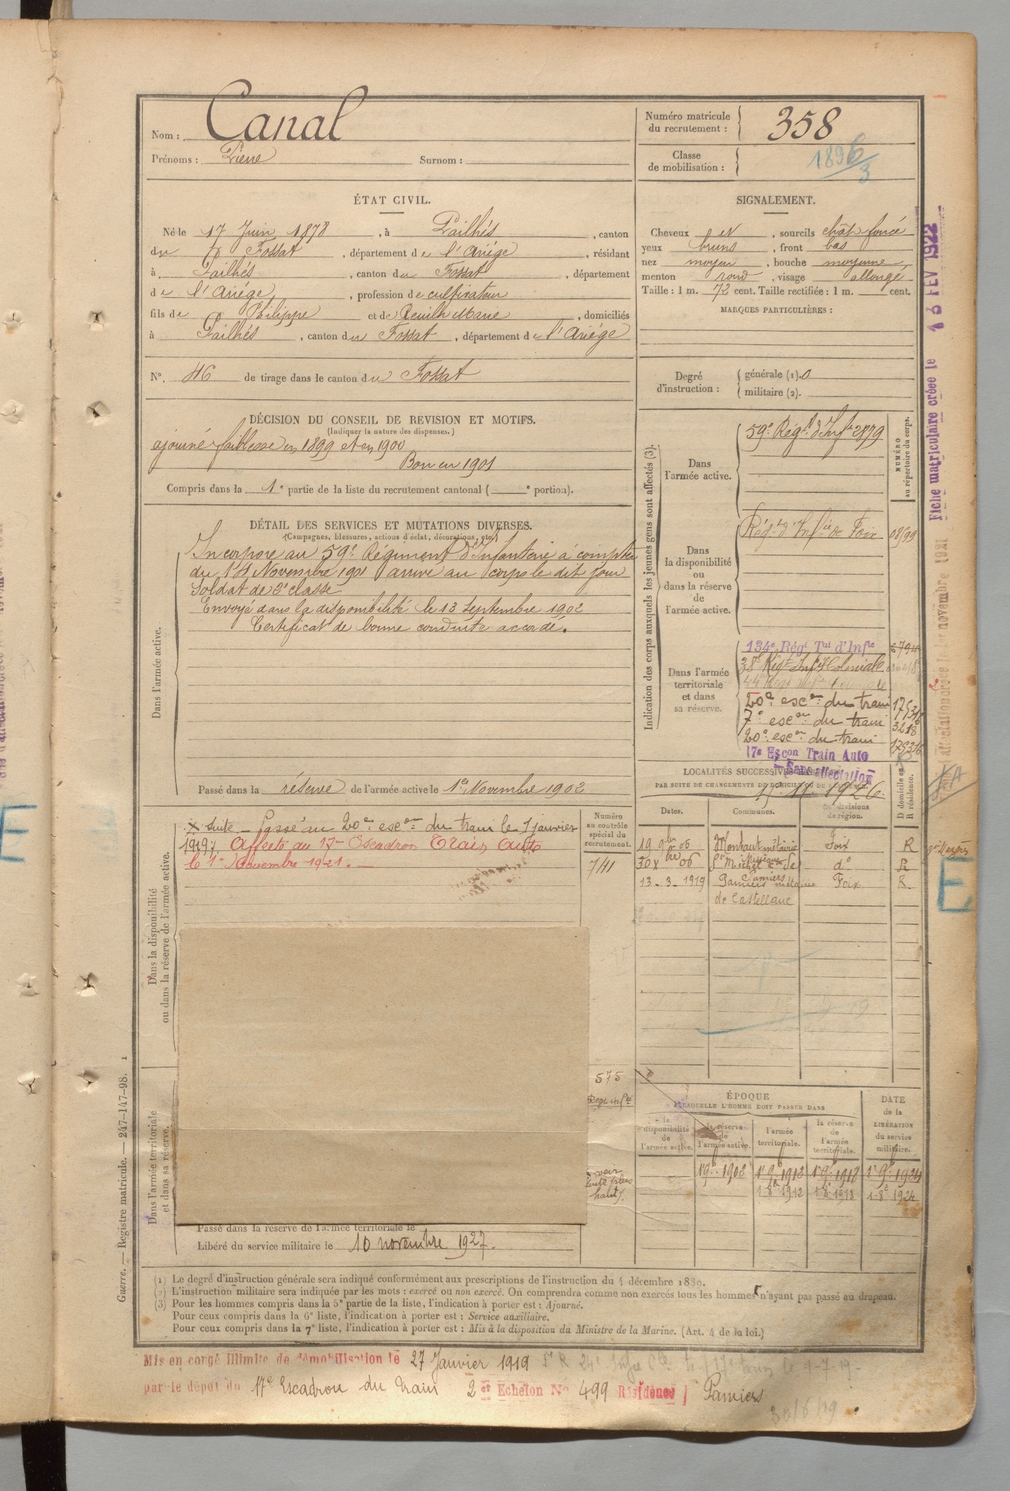 Nom : Canal
Prénoms : Pierre Surnom :
Numéro matricule du recrutement : 358
Classe de mobilisation : 1896/3
ÉTAT CIVIL.
Né le 17 Juin 1878, à Pailhés, canton
du Fossat, département de l'Ariége, résidant
à Pailhés, canton du Fossat, département
de l'Ariége, profession de cultivateur
fils de Philippe et de Reuilh Marie, domiciliés
à Pailhés, canton du Fossat, département de l'Ariége
N°. 46 de tirage dans le canton du Fossat
SIGNALEMENT.
Cheveux et, sourcils chât foncé
yeux bruns, front bas
nez moyen, bouche moyenne,
menton rond, visage allongé
Taille : 1 m. 72 cent. Taille rectifiée : 1 m. cent.
MARQUES PARTICULIÈRES :
Degré d'instruction : générale (1). 0
militaire (2).
DÉCISION DU CONSEIL DE REVISION ET MOTIFS.
(Indiquer la nature des dispenses.)
ajourné faiblesse en 1899 et en 1900
Bon en 1901
Compris dans la 1e partie de la liste du recrutement cantonal ( e portion).
DÉTAIL DES SERVICES ET MUTATIONS DIVERSES.
(Campagnes, blessures, actions d'éclat, décorations, etc.)
Dans l'armée active.
Incorporé au 59e Régiment d'Infanterie à compter
du 14 Novembre 1901 arrivé au corps le dit jour
Soldat de 2e classe
Envoyé dans la disponibilité le 13 Septembre 1902
Certificat de bonne conduite accordé.
Passé dans la réserve de l'armée active le 1er Novembre 1902
Indication des corps auxquels les jeunes gens sont affectés (3).
NUMÉRO au répertoire du corps.
Dans l'armée active.
59e Régt d'Infie 2879
Dans la disponibilité ou dans la réserve de l'armée active.
Régt d'Infie de Foix 08199
Dans l'armée territoriale et dans sa réserve.
134e Régt Tal d'Infie
38e Régt Infie Coloniale
20e escon du train
7e escon du train
20e escon du train
17e Escon Train Auto
Sans affectation
Dans la disponibilité ou dans la réserve de l'armée active.
X Suite – Passé au 20e escon du train le 1 janvier
1917. Affecté au 17me Escadron Train Auto
le 1er Novembre 1921.
Numéro au contrôle spécial du recrutement.
741
LOCALITÉS SUCCESSIVES
PAR SUITE DE CHANGEMENTS DE DOMICILE
Dates. Communes. Subdivisions de région. D domicile ou R résidence.
19 9bre 05 Foix R
30 Xbre 06 do R
13-3-1919 Pamiers Foix R
de Castellane
Dans l'armée territoriale et dans sa réserve.
575
ÉPOQUE
A LAQUELLE L'HOMME DOIT PASSER DANS
DATE de la LIBÉRATION du service militaire.
la disponibilité de l'armée active.
la réserve de l'armée active.
l'armée territoriale.
la réserve de l'armée territoriale.
1er 9bre 1902 1er 9bre 1912 1er 9bre 1918 1er 9bre 1924
1-8bre 1912 1-8bre 1918 1-8bre 1924
Passé dans la réserve de l'armée territoriale le
Libéré du service militaire le 10 novembre 1927.
(1) Le degré d'instruction générale sera indiqué conformément aux prescriptions de l'instruction du 4 décembre 1889.
(2) L'instruction militaire sera indiquée par les mots : exercé ou non exercé. On comprendra comme non exercés tous les hommes n'ayant pas passé au drapeau.
(3) Pour les hommes compris dans la 5e partie de la liste, l'indication à porter est : Ajourné.
Pour ceux compris dans la 6e liste, l'indication à porter est : Service auxiliaire.
Pour ceux compris dans la 7e liste, l'indication à porter est : Mis à la disposition du Ministre de la Marine. (Art. 4 de la loi.)
Mis en congé illimité de démobilisation le 27 Janvier 1919
par le dépôt du 17e Escadron du train 2 e Echelon N° 499 Résidence Pamiers
30/6/19
Guerre. — Registre matricule. — 247-147-98. 1
Fiche matriculaire créée le 13 FEV 1922
novembre 1921
E